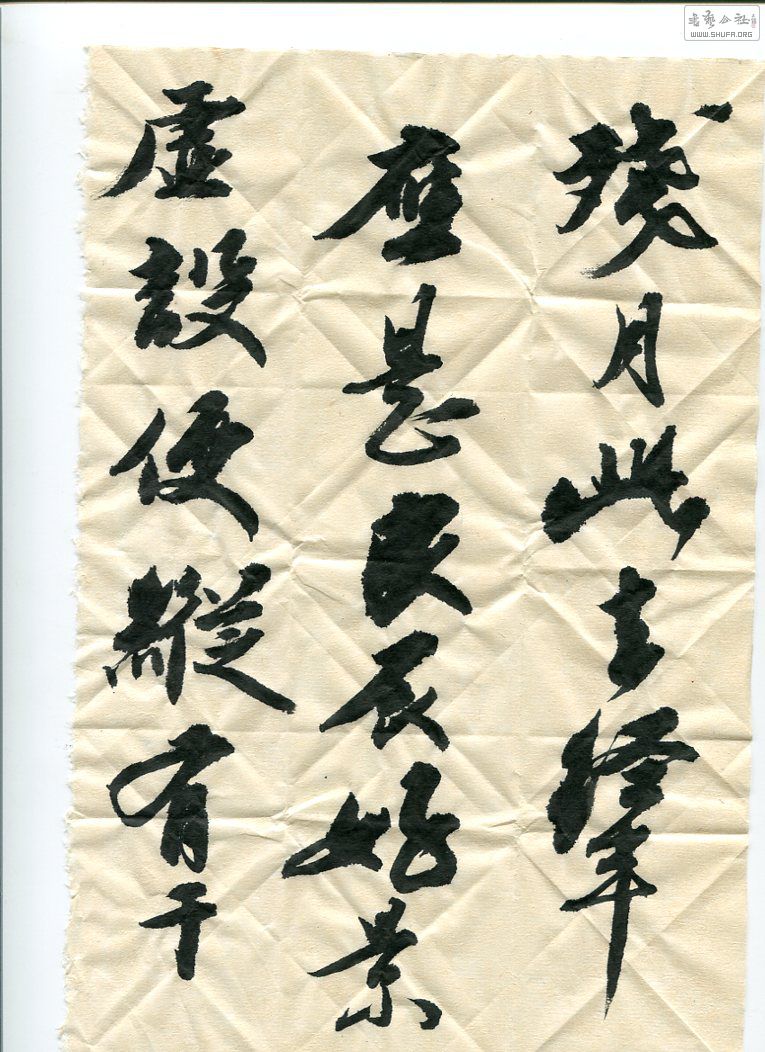 殘月此去經年
應是良辰好景
虛設便縱有千
书艺公社
WWW.SHUFA.ORG